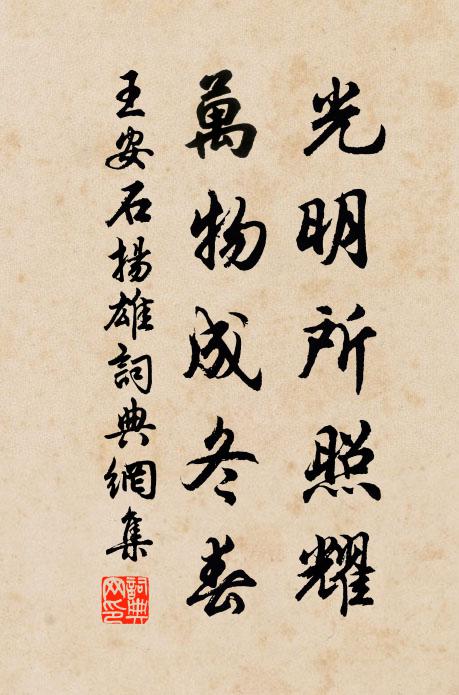 光明所照耀
萬物成冬春
王安石揚雄詞典網集
詞典網印